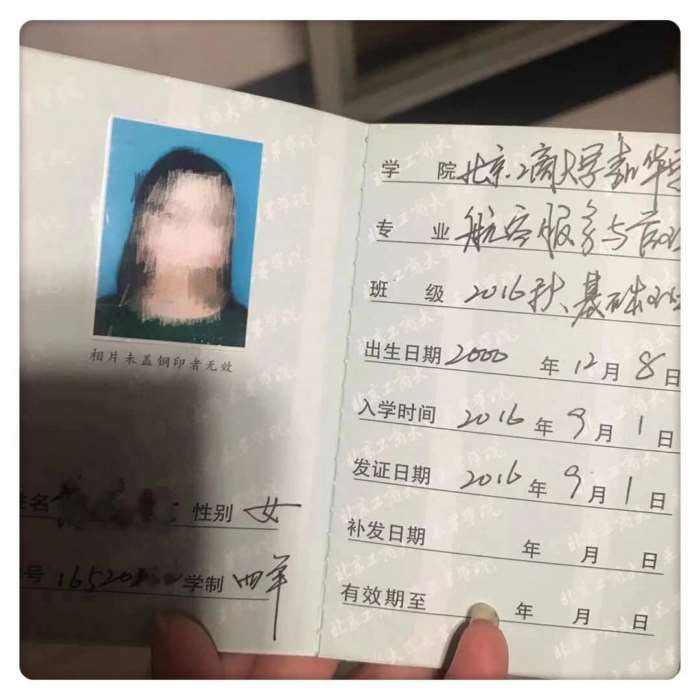 相片未盖钢印者无效
姓名 性别 女
号 165202 学制 四年
学 院 北京工商大学嘉华
专 业 航空服务与
班 级 2016秋基础
出生日期 2000 年 12 月 8 日
入学时间 2016 年 9 月 1 日
发证日期 2016 年 9 月 1 日
补发日期 年 月 日
有效期至 年 月 日